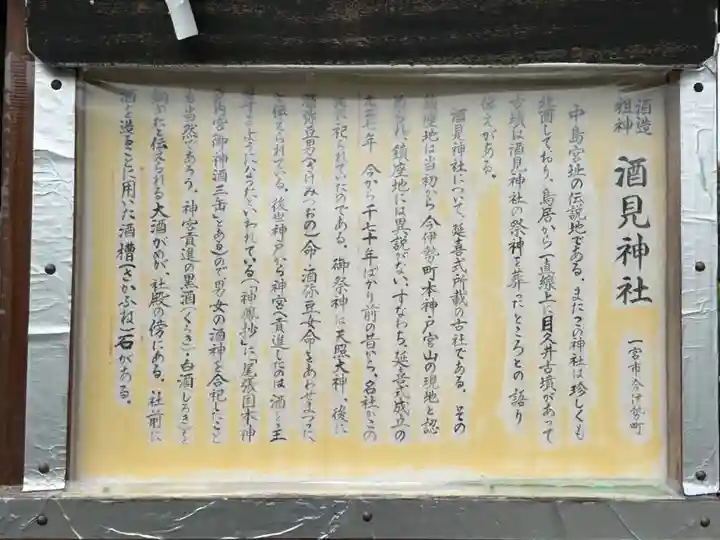 酒造
祖神
酒見神社
一宮市今伊勢町
中島宮址の伝説地である。またこの神社は珍しくも
北面しており、鳥居から一直線上に目久井古墳があって
古墳は酒見神社の祭神を葬ったところとの語り
伝えがある。
酒見神社について、延喜式所載の古社である。その
鎮座地は当初から今伊勢町本神戸宮山の現地と認
められ、鎮座地には異説がない。すなわち、延喜式成立の
九二七年 今から千七十年ばかり前の昔から、名社がこの
に祀られていたのである。御祭神は天照大神、後に
弥豆男(みけみつお)命、酒弥豆女命をあわせまつつに
と伝えられている。後世神戸から神宮へ貢進したのは酒を主
ようになったといわれている(「神鳳抄」に「尾張国本神
宮御神酒三缶」とある)ので男女の酒神を合祀したこと
も当然であろう。神宮貢進の黒酒(くろき)・白酒(しろき)を
と伝えられる大酒がめが、社殿の傍にある。社前に
酒を造ることに用いた酒槽(さかふね)石がある。